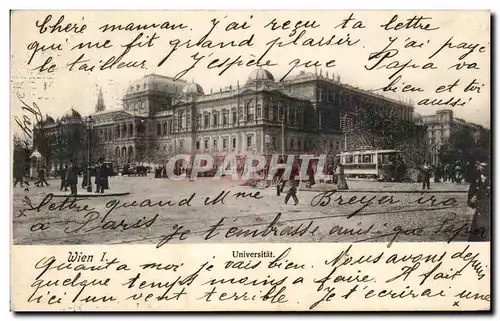 Chère maman. J'ai reçu ta lettre
qui me fit grand plaisir. J'ai payé
le tailleur. J'espère que Papa va
bien et toi
aussi.
CPARAMA
lettre quand Mme Breyer ira
à Paris. Je t'embrasse ainsi que Papa
Wien I. Universität.
Quant à moi je vais bien. Nous avons depuis
quelque temps moins à faire. Il fait d'
ici un vent terrible. Je t'écrirai une